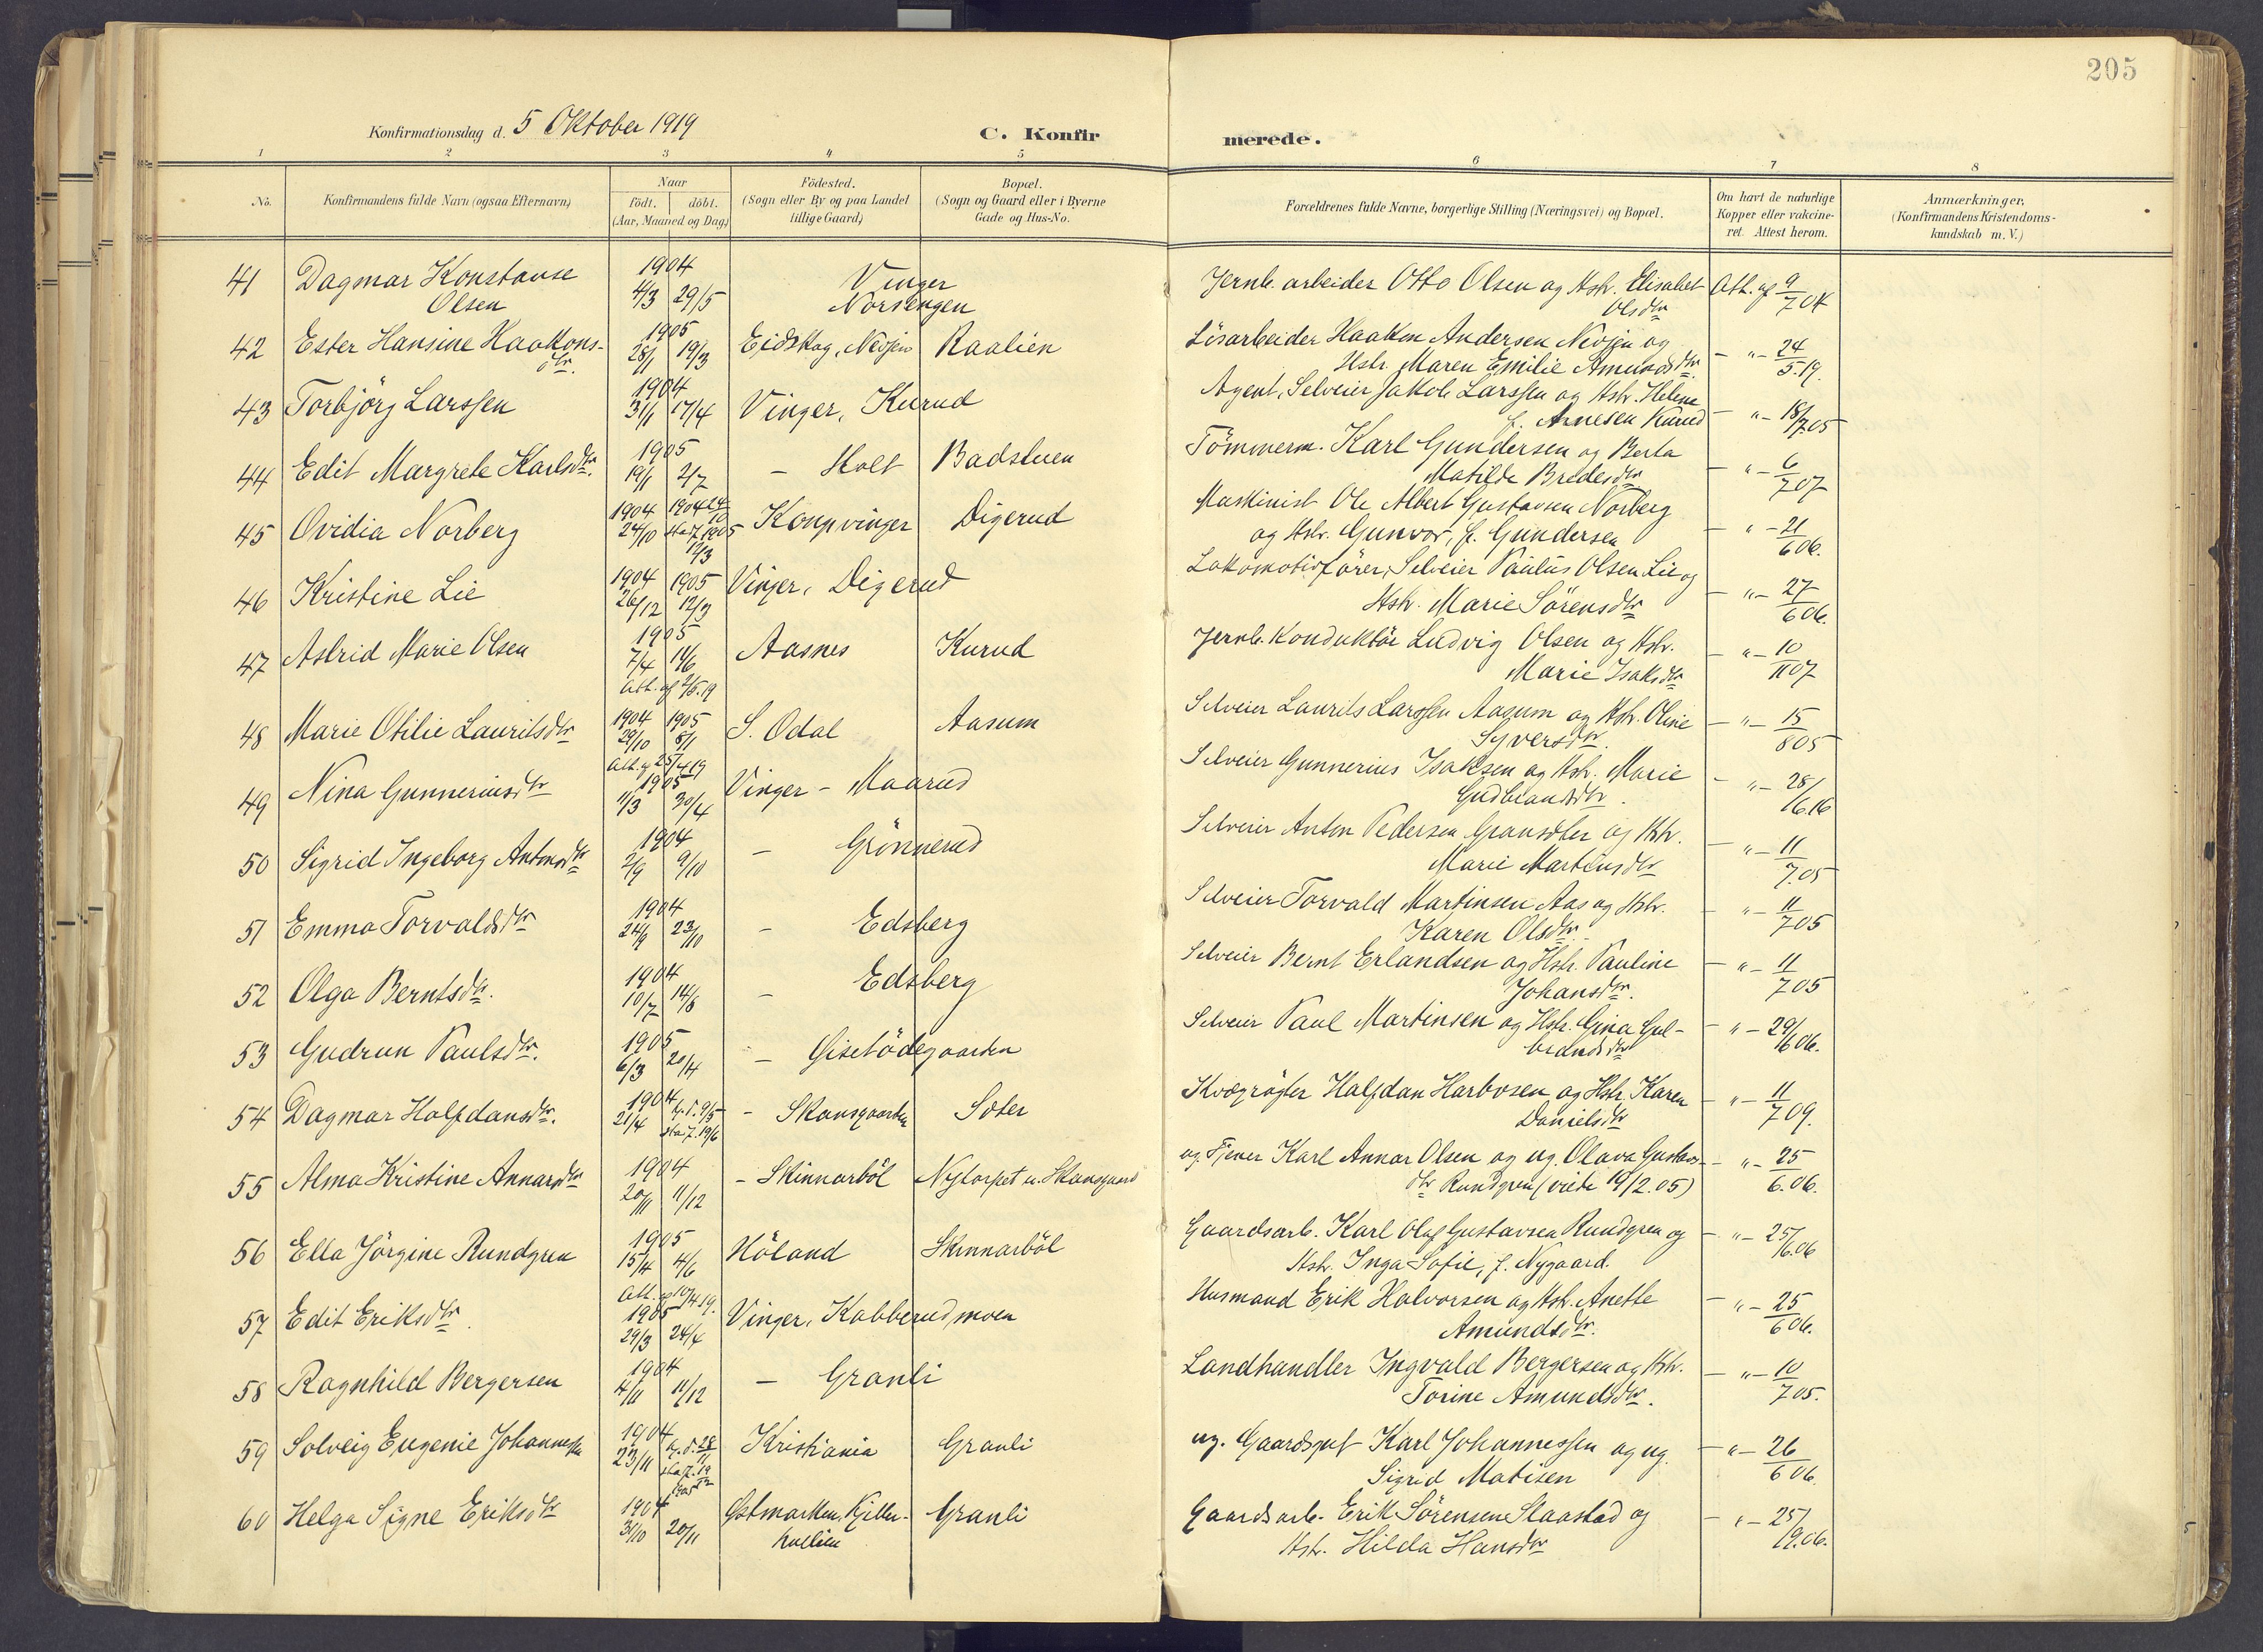 205
Konfirmationsdag d. 5 Oktober 1919
C. Konfir
merede.
1 2 3 4 5 6 7 8
No.
Konfirmandens fulde Navn (ogsaa Efternavn)
Naar
födt. döbt.
(Aar, Maaned og Dag)
Födested.
(Sogn eller By og paa Landet
tillige Gaard)
Bopæl.
(Sogn og Gaard eller i Byerne
Gade og Hus-No.
Forældrenes fulde Navne, borgerlige Stilling (Næringsvei) og Bopæl.
Om havt de naturlige
Kopper eller vakcine-
ret. Attest herom.
Anmærkninger.
(Konfirmandens Kristendoms-
kundskab m. V.)
41 Dagmar Konstanse Olsen 1904 4/3 29/5 Vinger Norsengen
Jernb. arbeider Otto Olsen og Hstr. Elisabet Olsdtr Att. af 9/7 04
42 Ester Hansine Haakonsdtr. 1905 28/1 19/3 Eidskog, Raalien
Lösarbeider Haakon Andersen og
Hstr. Maren Emilie Amundsdtr. - " - 24/5.19.
43 Torbjörg Larssen 1904 31/1 17/4 Vinger, Kurud
Agent, Selveier Jakob Larssen og Hstr. Helene
f. Arnesen Kurud - " - 18/7.05
44 Edit Margrete Karlsdtr. 1905 19/1 2/7 - Holt Badstuen
Tömmerm. Karl Gundersen og Berta
Matilde Bredesdtr - " - 6/7 07
45 Ovidia Norberg 1904 24/10 1904 24/10 1905 12/3 Kongvinger Digerud
Maskinist Ole Albert Gustavsen Norberg
og Hstr. Gunvor, f. Gundersen - " - 21/6 06.
46 Kristine Lie 1904 26/12 1905 12/3 Vinger, Digerud
Lokomotivförer, Selveier Paulus Olsen Lie og
Hstr. Marie Sörensdtr - " - 27/6 06.
47 Astrid Marie Olsen 1905 7/4 11/6 Aasnes Kurud
Att. af 2/5.19
Jernb. Konduktör Ludvig Olsen og Hstr.
Marie Isaksdtr - " - 10/11 07
48 Marie Otilie Lauritsdtr 1904 29/10 1905 8/1 S. Odal Aasum
Att. af 25/4 19
Selveier Laurits Larssen Aasum og Hstr. Oline
Syversdtr. - " - 15/8 05
49 Nina Gunneriusdtr 1905 11/3 30/4 Vinger - Maarud
Selveier Gunnerius Isaksen og Hstr. Marie
Gudbrandsdtr. - " - 28/6.16
50 Sigrid Ingeborg Antonsdtr 1904 2/9 9/10 - Grönnerud
Selveier Anton Pedersen og Hstr.
Marie Martinsdtr - " - 11/7.05
51 Emma Torvaldsdtr 1904 24/9 23/10 - Edsberg
Selveier Torvald Martinsen Aas og Hstr.
Karen Olsdtr. - " - 11/7 05
52 Olga Berntsdtr. 1904 10/7 14/8 - Edsberg
Selveier Bernt Erlandsen og Hstr. Pauline
Johansdtr. - " - 11/7 05
53 Gudrun Paulsdtr. 1905 6/3 20/4 - Gisetödegaarden
Selveier Paul Martinsen og Hstr. Gina Gul-
brandsdtr - " - 29/6 06.
54 Dagmar Halfdansdtr. 1904 21/4 hj. d. 9/5 stadf. 19/6 - Skansgaarden Sæter
Kvægrögter Halfdan Harbosen og Hstr. Karen
Danielsdtr - " - 11/7 09.
55 Alma Kristine Annarsdtr 1904 20/11 11/12 - Skinnarböl Nytorpet u. Skansgaard
ug. Tjener Karl Annar Olsen og ug. Olava Gustavs-
dtr Rundgren (viede 19/2.05) - " - 25/6.06.
56 Ella Jörgine Rundgren 1905 15/4 4/6 Höland Skinnarböl
Att. af 10/4 19.
Gaardsarb. Karl Olaf Gustavsen Rundgren og
Hstr. Inga Sofie, f. Nygaard. - " - 25/6.06
57 Edit Eriksdtr. 1905 29/3 24/4 Vinger, Kabberudmoen
Husmand Erik Halvorsen og Hstr. Anette
Amundsdtr. - " - 25/6 06.
58 Ragnhild Bergersen 1904 4/11 11/12 - Granli
Landhandler Ingvald Bergersen og Hstr.
Torine Amundsdtr. - " - 10/7 05.
59 Solveig Eugenie 1904 23/11 hj. d. 28/11 Kristiania Granli
ug. Gaardsgut Karl Johannessen og ug.
Sigrid Matisen - " - 26/6 06.
60 Helga Signe Eriksdtr 1904 31/10 20/11 Østmarken, Granli
Gaardsarb. Erik Sörensen Slaastad og
Hstr. Hilda Hansdtr - " - 25/9.06.